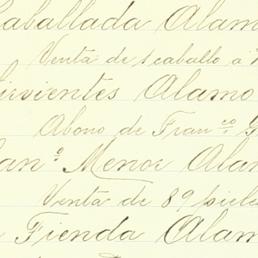 Caballada Alamo
Venta de 1 caballo a
Sirvientes Alamo
Abono de Fran.co G
Gan.o Menor Alam
Venta de 89 piele
Tienda Alam